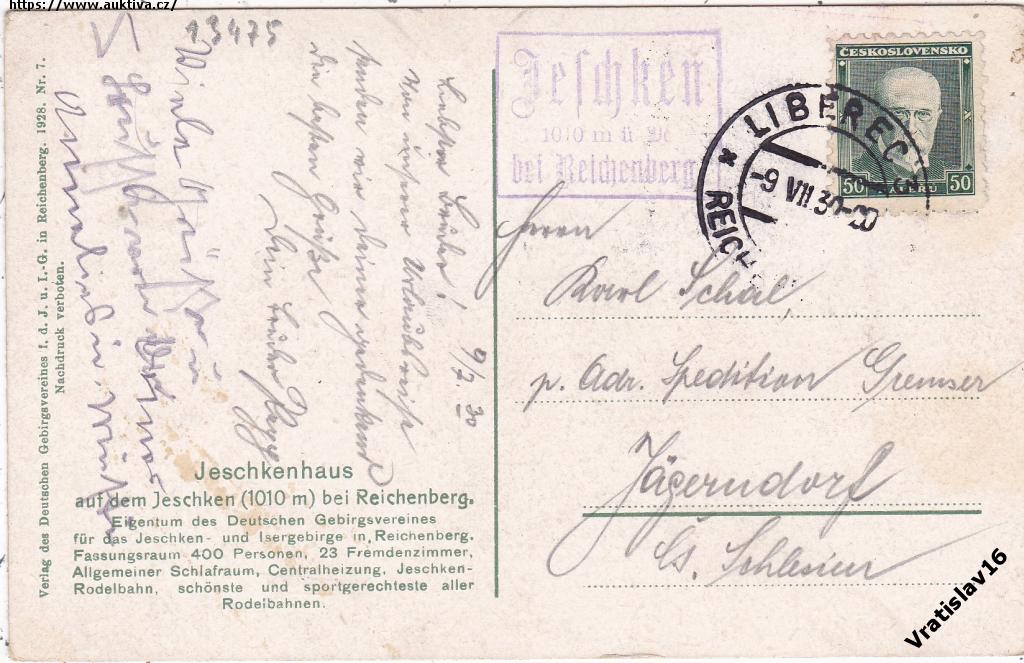 https://www.auktiva.cz/
13475
Jeschken
1010 m ü
bei Reichenberg
ČESKOSLOVENSKO
50 HALÉŘŮ 50
LIBEREC
9 VII 30-20
REICH
9/7. 30
Liebster Bruder!
Von unserer Urlaubsreise
senden wir deiner gedenkend
die besten Grüße
Dein Bruder
Viele Grüße
Herrn
Karl Schal
p. Adr. Spedition Gremser
Jägerndorf
Čs. Schlesien
Jeschkenhaus
auf dem Jeschken (1010 m) bei Reichenberg.
Eigentum des Deutschen Gebirgsvereines
für das Jeschken- und Isergebirge in Reichenberg.
Fassungsraum 400 Personen, 23 Fremdenzimmer,
Allgemeiner Schlafraum, Centralheizung, Jeschken-
Rodelbahn, schönste und sportgerechteste aller
Rodelbahnen.
Verlag des Deutschen Gebirgsvereines f. d. J. u. I.-G. in Reichenberg. 1928. Nr. 7.
Nachdruck verboten.
Vratislav16